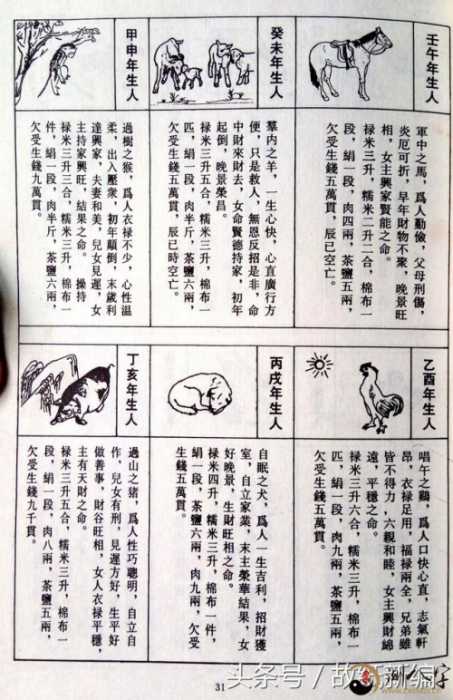 壬午年生人
軍中之馬，爲人勤儉，父母刑傷，
炎厄可折，早年財物不聚，晚景旺
相，女主興家賢能之命。
禄米三升，糯米二升二合，棉布一
段，絹一段，肉四兩，茶鹽五兩，
欠受生錢五萬貫，辰巳時空亡。
癸未年生人
羣内之羊，一生心快，心直廣行方
便，只是救人，無恩反招是非，命
中財來財去，女命賢德持家，初年
起倒，晚景榮昌。
禄米三升五合，糯米三升，棉布一
匹，絹一段，肉半斤，茶鹽六兩，
欠受生錢五萬貫，辰巳時空亡。
甲申年生人
過樹之猴，爲人衣禄不少，心性温
柔，出入壓衆，初年顛倒，末歲利
達興家，夫妻和美，兒女見遲，女
主持家興旺，結果之命。操持
禄米三升三合，糯米三升，棉布一
件，絹一段，肉半斤，茶鹽六兩，
欠受生錢九萬貫。
乙酉年生人
唱午之鷄，爲人口快心直，志氣軒
昂，衣禄足用，福禄兩全，兄弟雖
皆不得力，六親和睦，女主興財綿
遠，平穩之命。
禄米三升六合，糯米三升，棉布一
匹，絹一段，肉九兩，茶鹽五兩，
欠受生錢五萬貫。
丙戌年生人
自眠之犬，爲人一生吉利，招財獲
室，自立家業，末主榮華結果，女
好晚景，生財旺相之命。
禄米四升，糯米三升，棉布一件，
絹一段，茶鹽六兩，肉九兩，欠受
生錢五萬貫。
丁亥年生人
過山之猪，爲人性巧聰明，自立自
作，兒女有刑，見遲方好，生平好
做善事，財谷旺相，女人衣禄平穩，
主有天財之命。
禄米三升五合，糯米三升，棉布一
段，絹一段，肉八兩，茶鹽五兩，
欠受生錢九千貫。
31
头条号／故纸新编